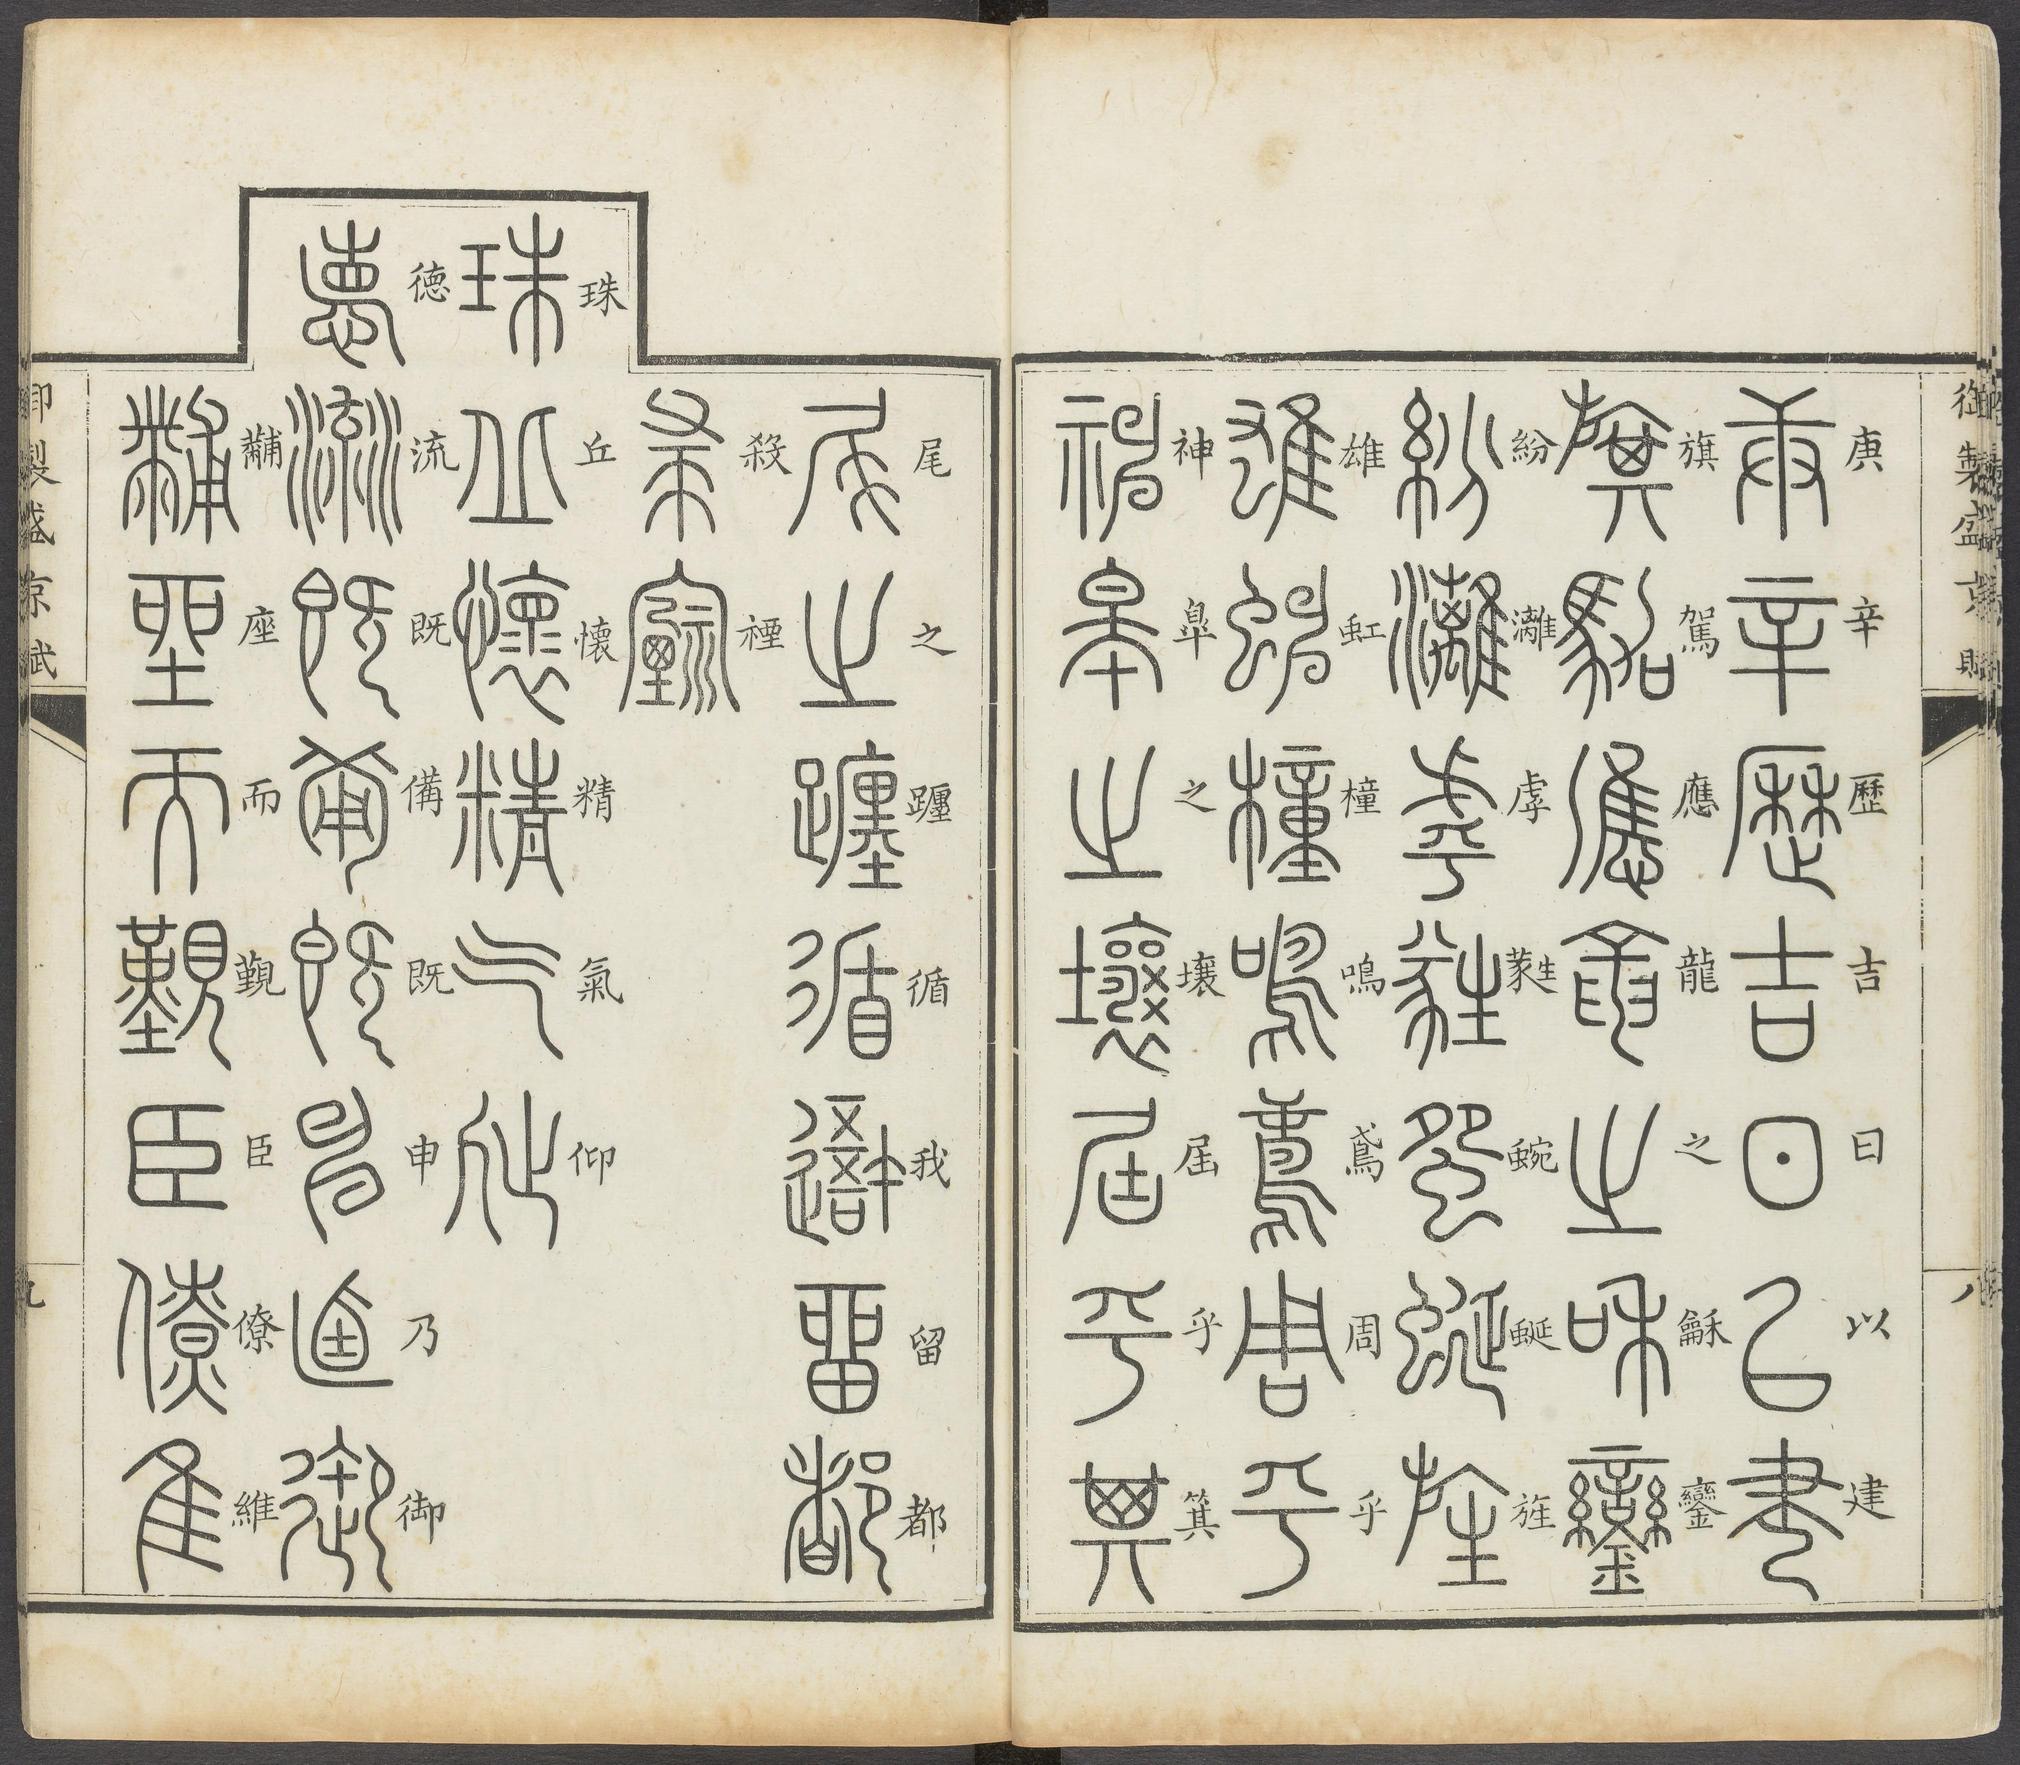 庚辛歷吉日以建
旗駕應龍之龢鑾
紛灕虖蜿蜒旌
雄虹橦鳴鳶周乎
神臯之壤屆乎箕
尾之躔循我留都
殺禋
珠丘懷精氣仰
德流既備既申乃御
黼座而覲臣僚維
御製盛京賦
八
御製盛京賦
九